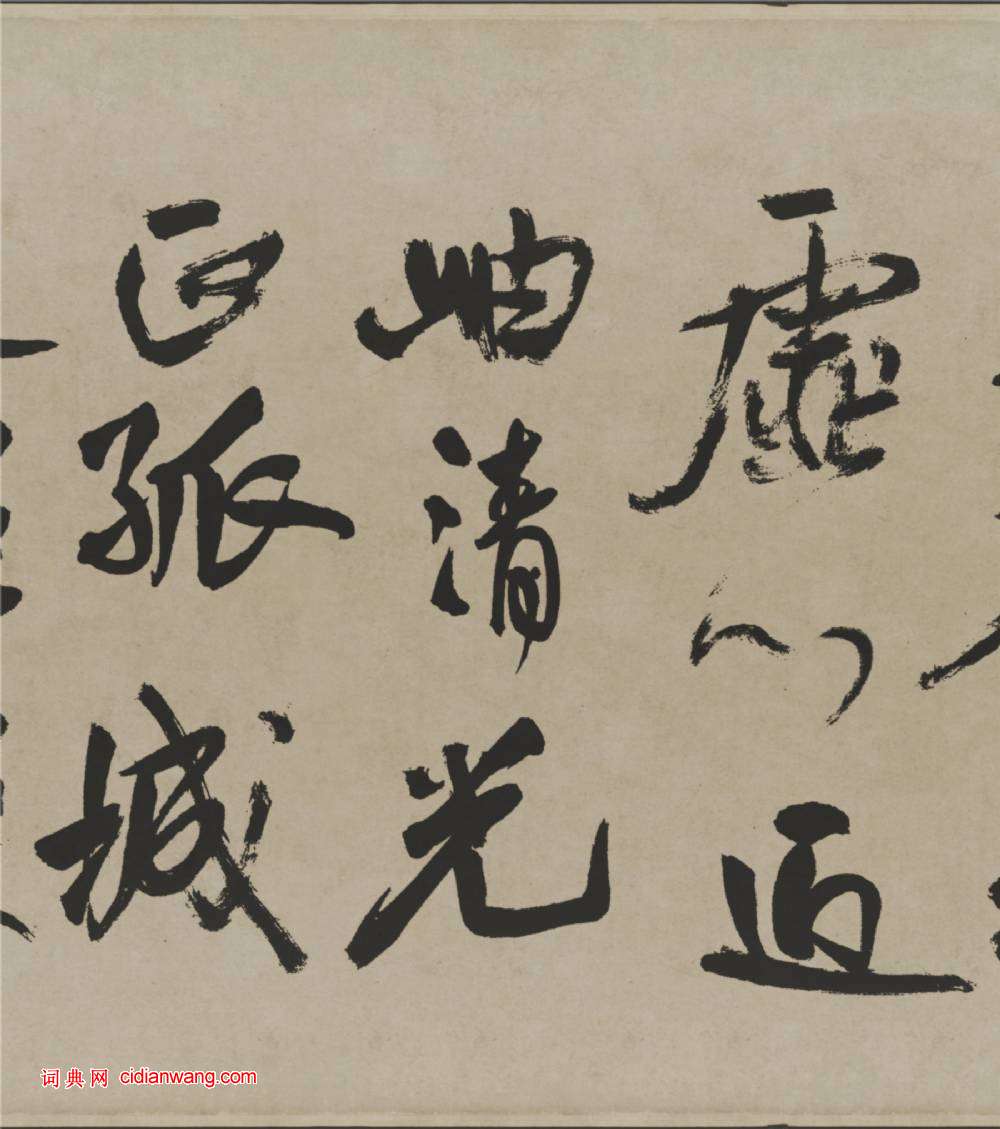 虚心近
岫清光
正孤城
词典网 cidianwang.com